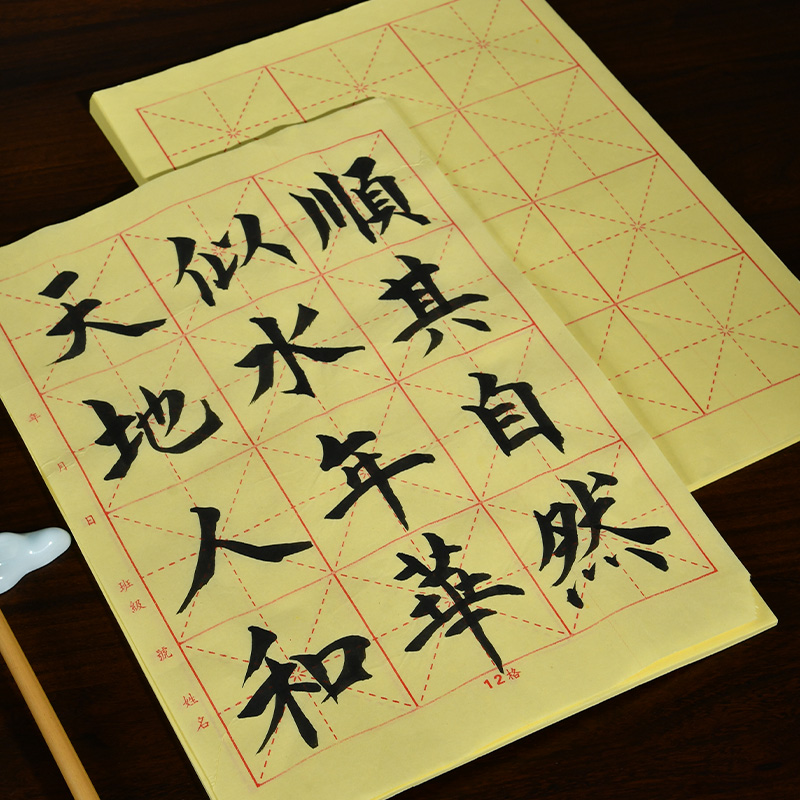 順其自然
似水年華
天地人和
年 月 日 班級 號 姓名
12格